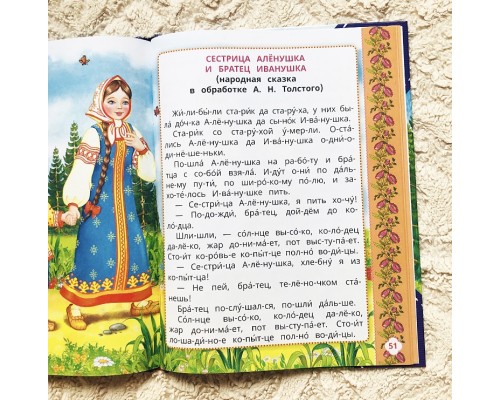 СЕСТРИЦА АЛЁНУШКА
И БРАТЕЦ ИВАНУШКА
(народная сказка
в обработке А. Н. Толстого)
Жи-ли-бы-ли ста-ри́к да ста-ру́-ха, у них бы-
ла́ до́ч-ка А-лё-ну-шка да сы-но́к И-ва́-ну-шка.
Ста-ри́к со ста-ру́-хой у́-мер-ли. О-ста́-
лись А-лё-ну-шка да И-ва́-ну-шка о-дни́-о-
ди-нё-шень-ки.
По-шла́ А-лё-ну-шка на ра-бо́-ту и бра́-
тца с со-бо́й взя-ла́. И-ду́т о-ни́ по да́ль-
не-му пу-ти́, по ши-ро́-ко-му по́-лю, и за-
хо-те́-лось И-ва́-ну-шке пить.
— Се-стри́-ца А-лё-ну-шка, я пить хо-чу́!
— По-до-жди́, бра́-тец, дой-дём до ко-
ло́-дца.
Шли-шли, — со́л-нце вы-со-ко́, ко-ло́-дец
да-ле-ко́, жар до-ни-ма́-ет, пот вы-сту-па́-ет.
Сто-и́т ко-ро́вь-е ко-пы́т-це пол-но́ во-ди́-цы.
— Се-стри́-ца А-лё-ну-шка, хле-бну́ я из
ко-пы́т-ца!
— Не пей, бра́-тец, те-лё-но-чком ста́-
нешь!
Бра́-тец по-слу́-шал-ся, по-шли́ да́ль-ше.
Со́л-нце вы-со-ко́, ко-ло́-дец да-ле-ко́,
жар до-ни-ма́-ет, пот вы-сту-па́-ет. Сто-и́т
ло-ша-ди́-но-е ко-пы́т-це пол-но́ во-ди́-цы.
51